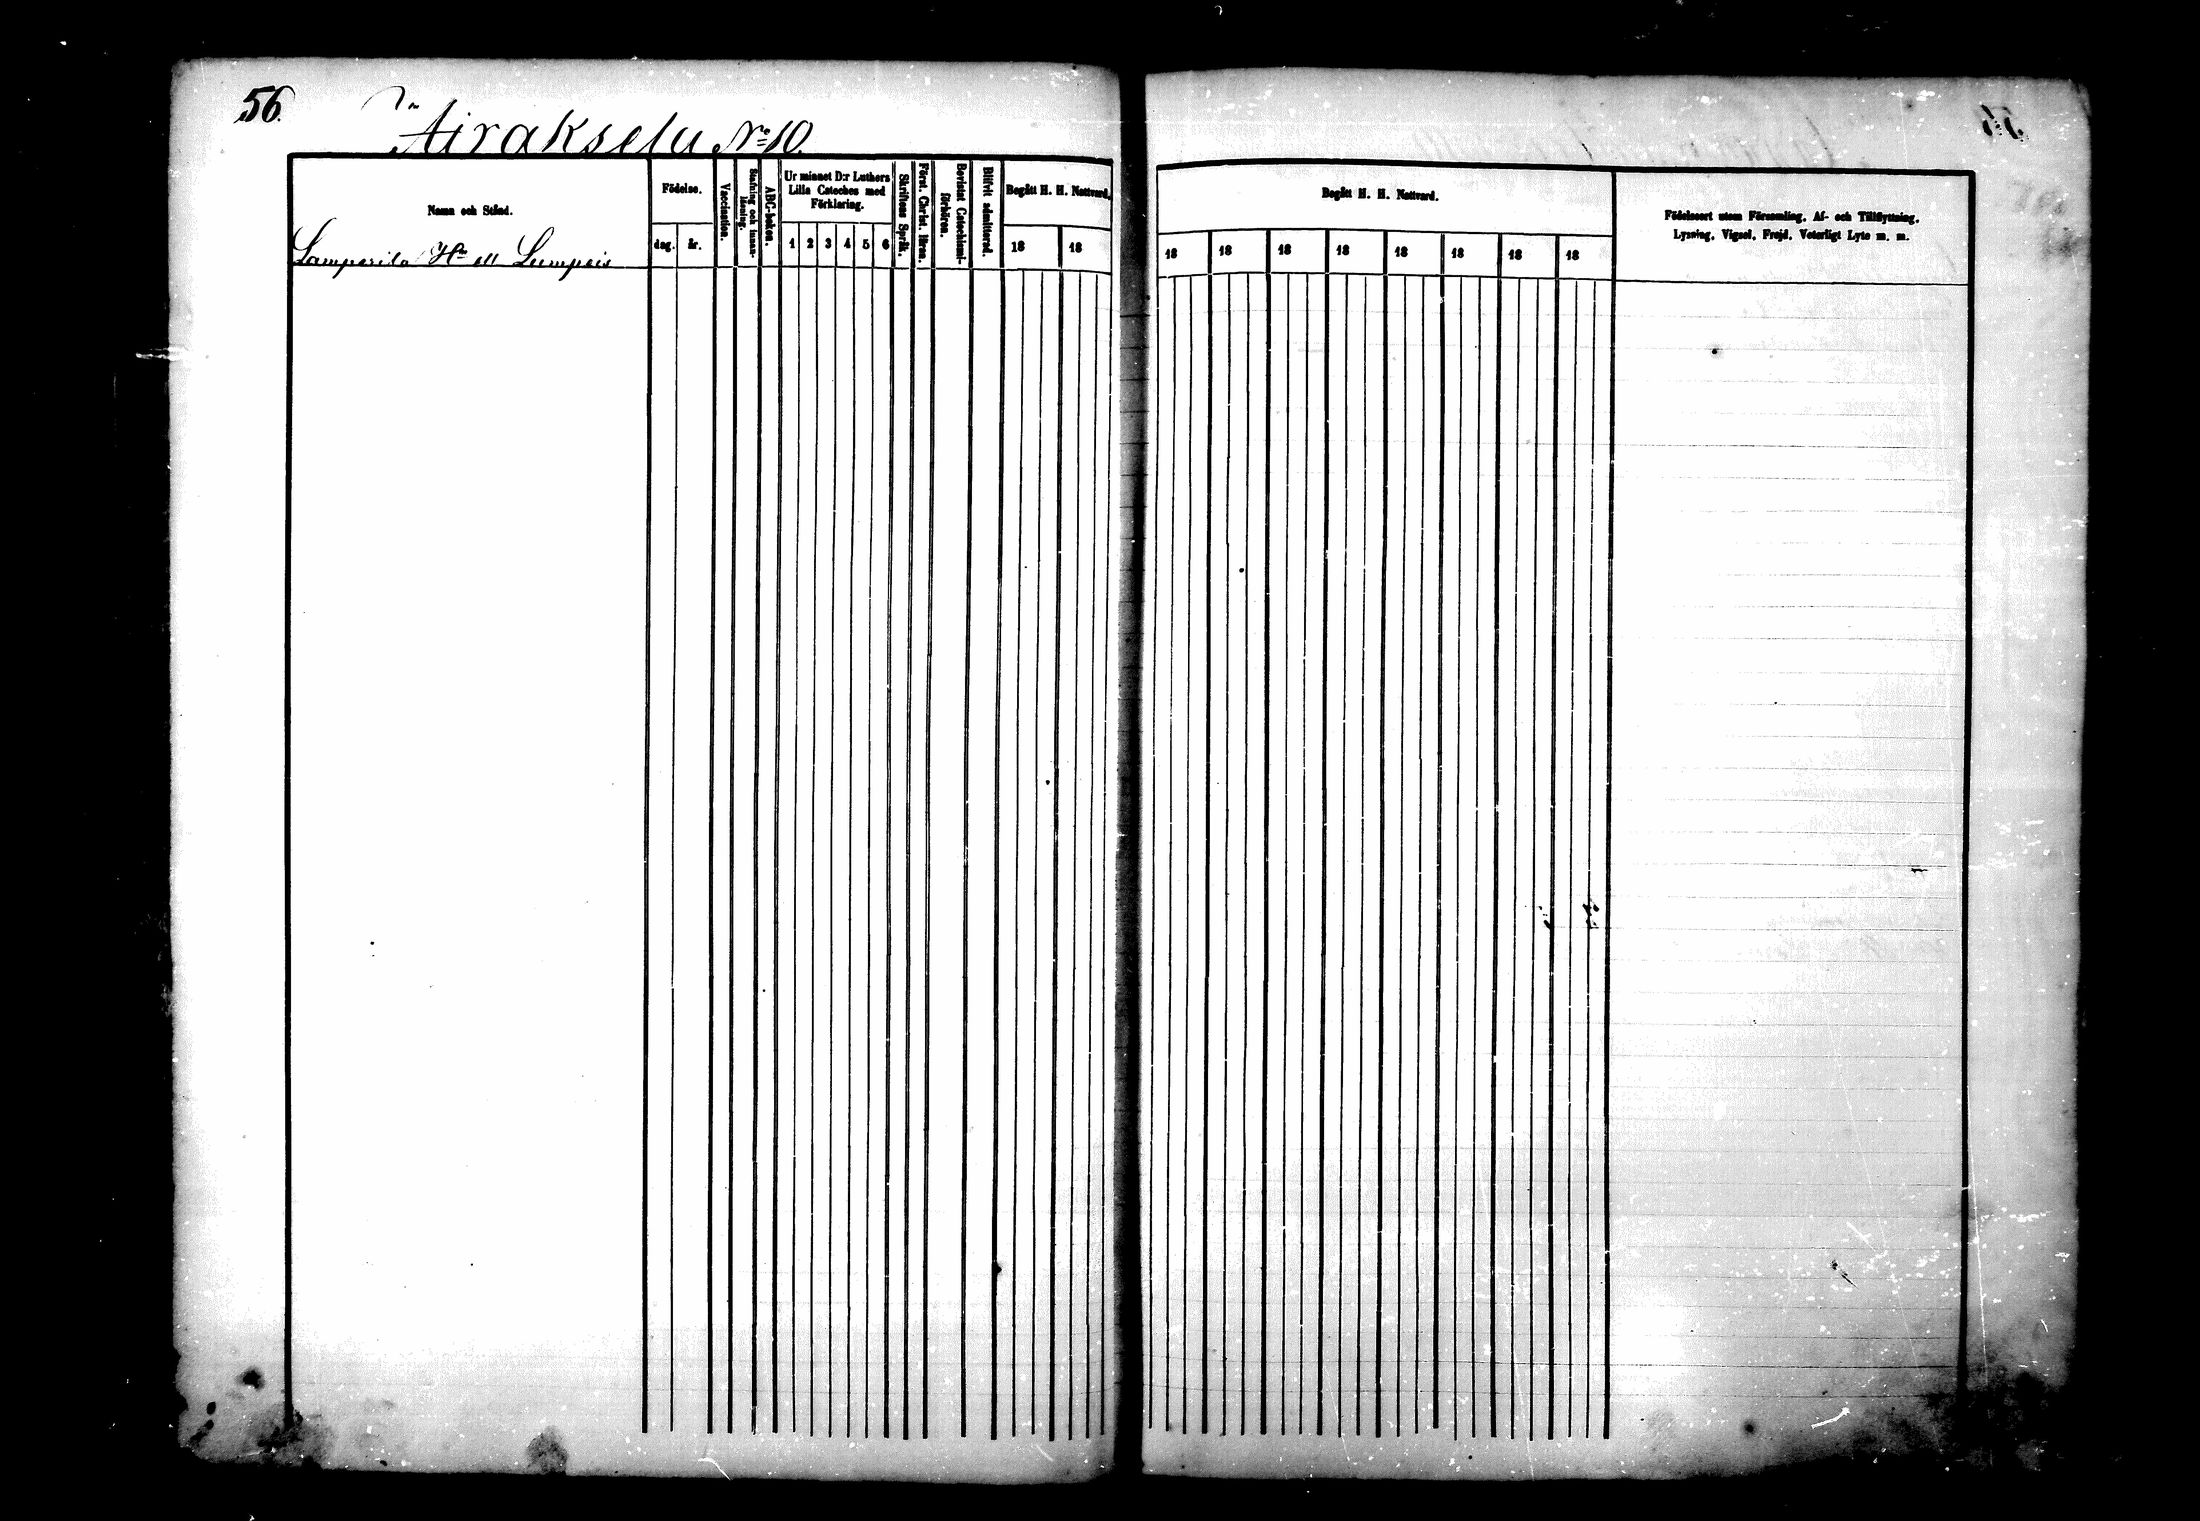 56.
Äirakselu No 10.
Namn och Stånd.
Lamparila Hn ell Lumpeis
Födelse.
dag. år.
Vaccination.
Stafning och innan-
läsning.
ABC-boken.
Ur minnet D:r Luthers
Lilla Cateches med
Förklaring.
1 2 3 4 5 6
Skriftens Språk.
Först. Christ. läran.
Bevistat Catechismi-
förhören.
Blifvit admitterad.
Begått H. H. Nattvard.
18 18
Begått H. H. Nattvard.
18 18 18 18 18 18 18 18
Födelseort utom Församling, Af- och Tillflyttning,
Lysning, Vigsel, Frejd, Veterligt Lyte m. m.